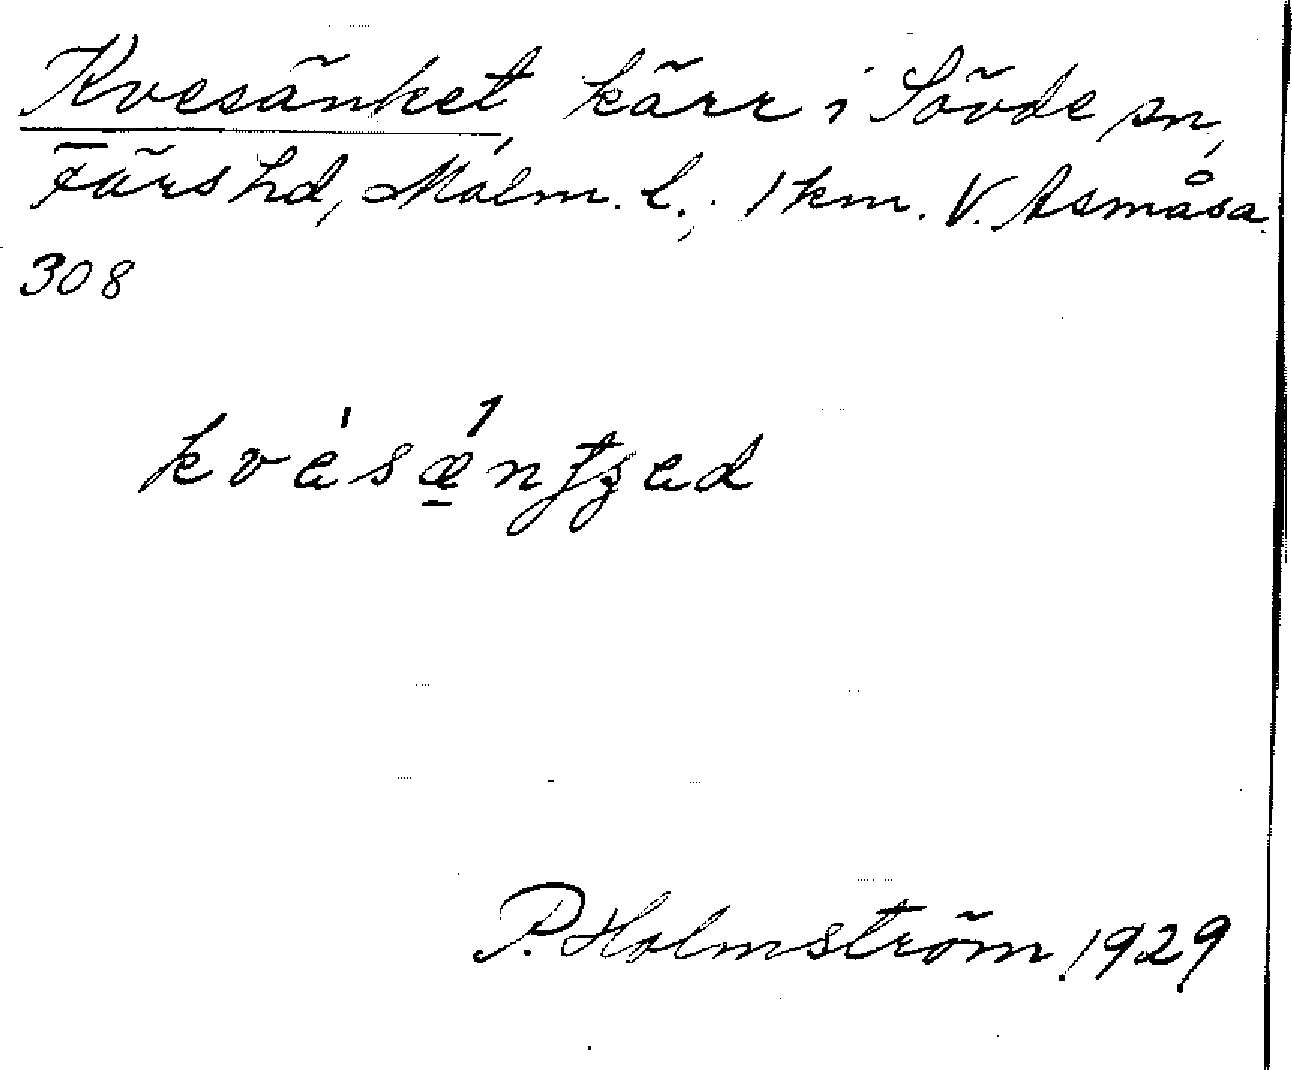 Kvesänket, kärr i Sövde sn,
Färs hd, Malm. l.; 1 km. V. Asmåsa.
308
kvésǽntʒed
P. Holmström 1929.